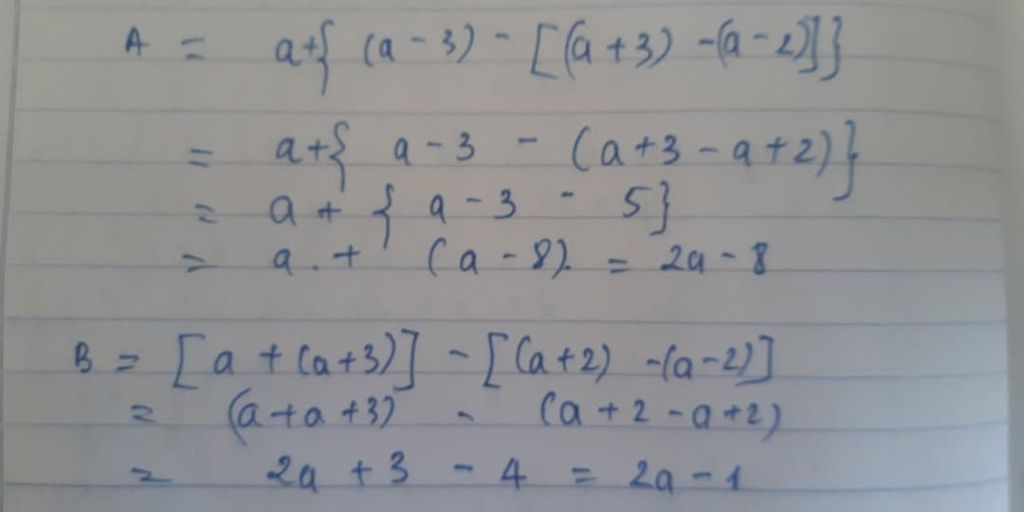 A = a+{ (a - 3) - [(a+3) -(a-2)]}
= a+{ a-3 - (a+3-a+2)}
= a + { a-3 - 5}
= a . + (a - 8). = 2a - 8
B = [a + (a+3)] - [(a+2) -(a-2)]
= (a+a+3) - (a+2-a+2)
= 2a + 3 - 4 = 2a - 1